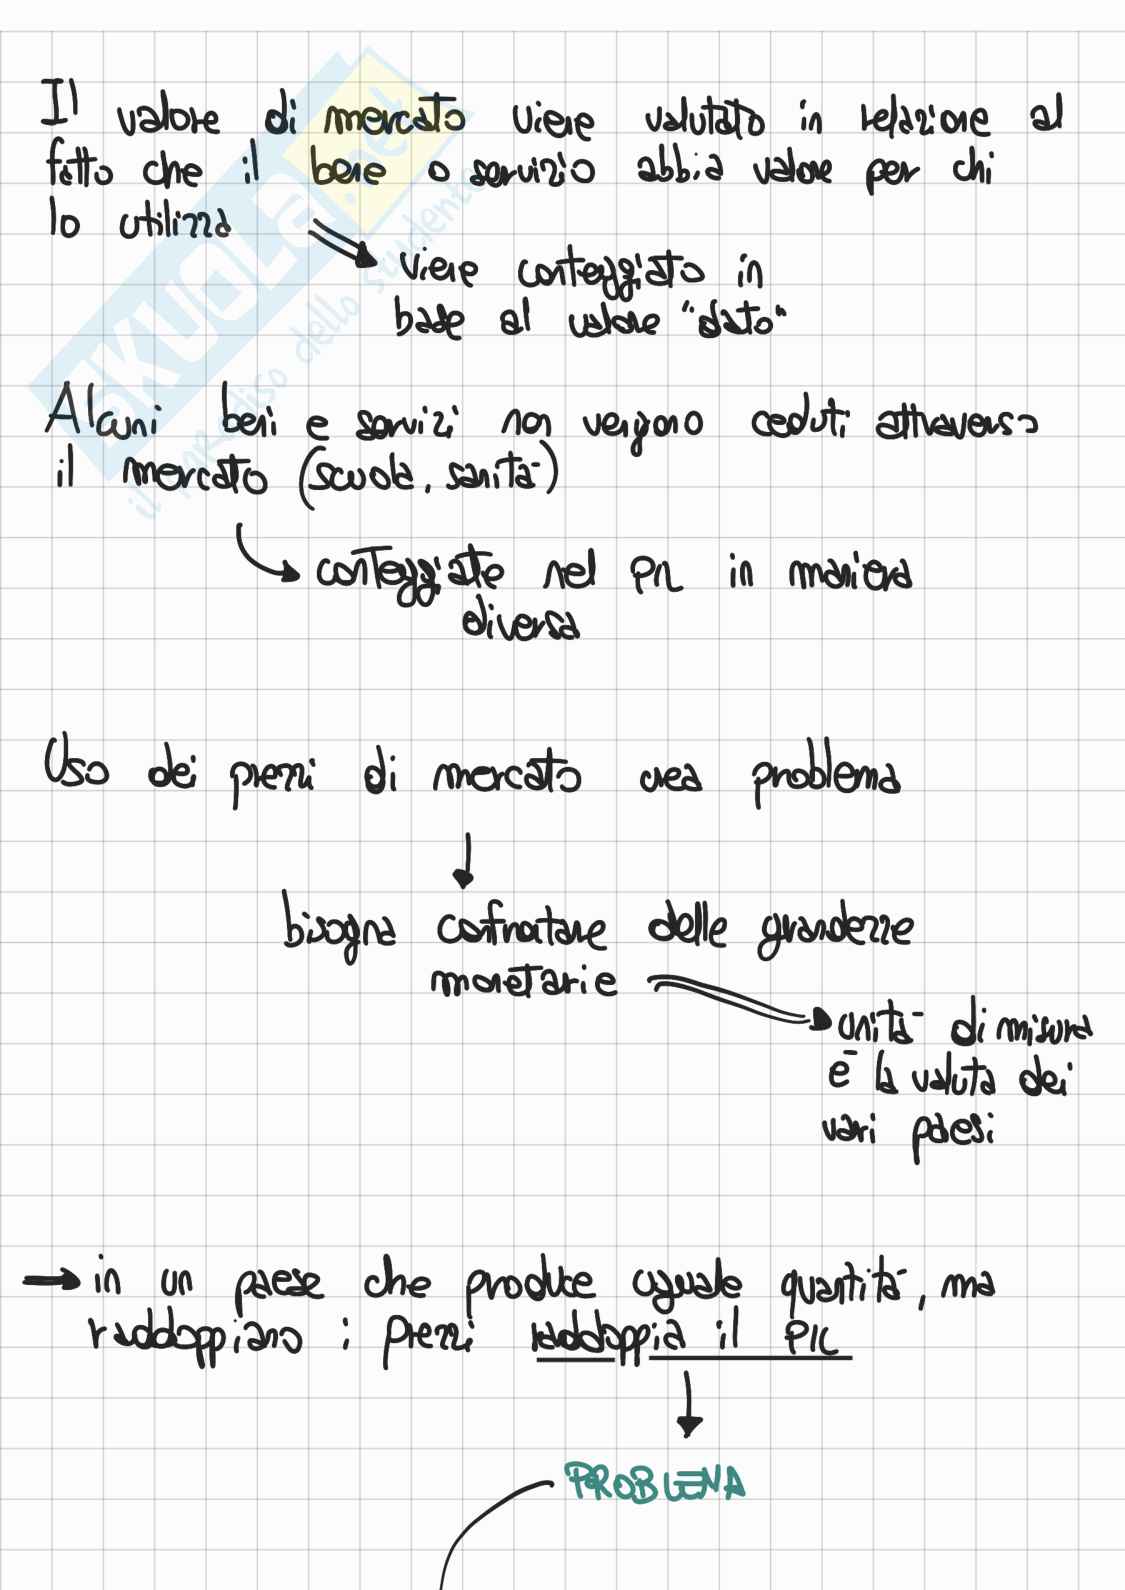 Il valore di mercato viene valutato in relazione al
fatto che il bene o servizio abbia valore per chi
lo utilizza
viene conteggiato in
base al valore "dato"
Alcuni beni e servizi non vengono ceduti attraverso
il mercato (scuola, sanità)
conteggiate nel PIL in maniera
diversa
Uso dei prezzi di mercato crea problema
bisogna confrontare delle grandezze
monetarie
unità di misura
è la valuta dei
vari paesi
→ in un paese che produce uguale quantità, ma
raddoppiano i prezzi raddoppia il PIL
PROBLEMA
SKUOLA.net
il paradiso dello studente